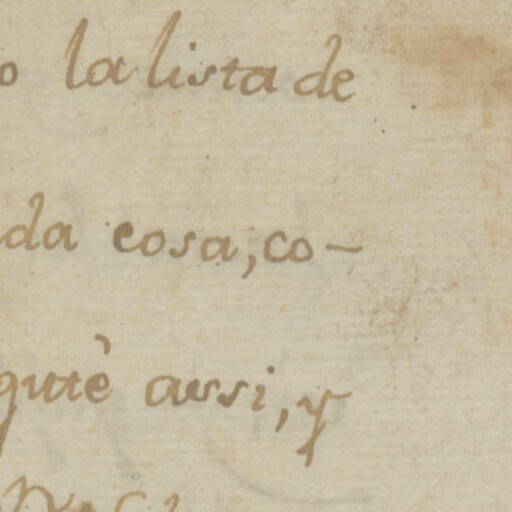 o la lista de
da cosa, co-
assi, y